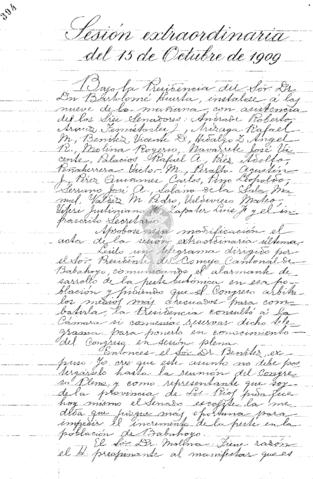 394
Sesión extraordinaria
del 15 de Octubre de 1909
Bajo la Presidencia del Sor. Dr.
Dn. Bartolomé Huerta, instalose á las
nueve de la mañana, con asistencia
de los Sres. Senadores: Andrade Roberto,
Arauz Temístocles, Arízaga Rafael
M., Benítez Vicente D., Hidalgo Z. Angel
R., Molina Rogerio, Navarrete José Vi-
cente, Palacios Rafael A., Páez Adolfo,
Peñaherrera Víctor M., Peralta Agustín
J., Pérez Quiñones Carlos, Pino Leopoldo,
Serrano José A., Solano de la Sala Ma-
nuel, Valdez M. Pedro, Valdivieso Mateo,
Justiniano, Zapater Luis F. y el in-
frascrito Secretario.
Aprobose modificación el
acta de la sesión extraordinaria última.
Leído un telegrama dirigido por
el Sor. Presidente del Concejo Cantonal de
Babahoyo, comunicando el alarmante de-
sarrollo de la peste bubónica en esa po-
blación y pidiendo que el Congreso arbitre
los medios más adecuados para com-
batirla, la Presidencia consultó á la
Cámara si convenía reservar dicho tele-
grama para ponerlo en conocimiento
del Congreso en sesión plena.
Entonces el Sor. Dr. Benítez, ex-
puso: Yo creo que este asunto no debe pos-
tergársele hasta la reunión del Congre-
so Pleno, y como representante que soy
de la provincia de Los Ríos pido que
hoy mismo el Senado escogite la me-
dida que juzgue más oportuna para
impedir el incremento de la peste en la
población de Babahoyo.
El Sor. Dr. Molina: Tiene razón
el H. preopinante al manifestar que es